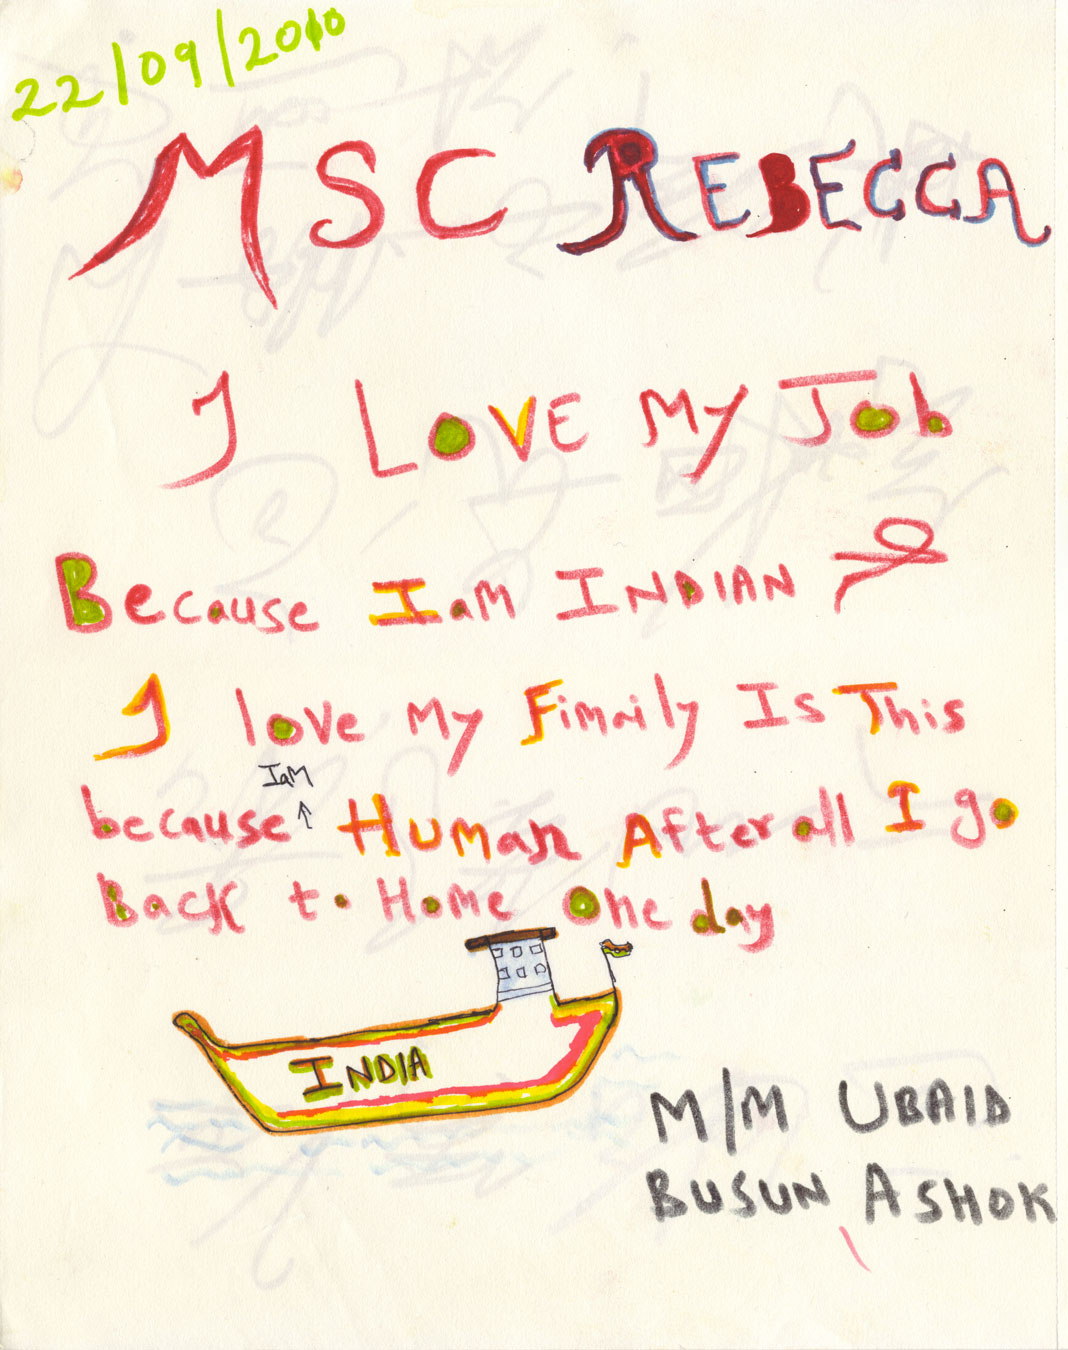 22/09/2010
MSC REBECCA
I LOVE My Job
Because I am INDIAN
I love My Fimaily Is This
because I am Human After all I go
Back to Home One day
INDIA
M/M UBAID
BUSUN ASHOK